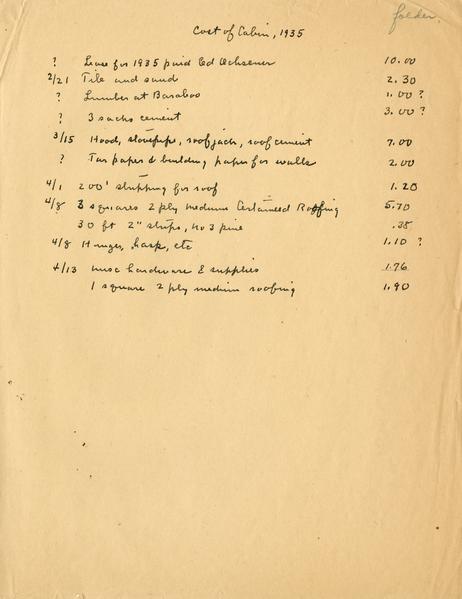 folder.
Cost of Cabin, 1935
? Lease for 1935 paid Ed Ochsener 10.00
2/21 Tile and sand 2.30
? Lumber at Baraboo 1.00 ?
? 3 sacks cement 3.00 ?
3/15 Hood, stovepipe, roofjack, roof cement 7.00
? Tar paper & building paper for walls 2.00
4/1 200' stripping for roof 1.20
4/8 3 squares 2 ply medium Certainteed Roofing 5.70
30 ft 2" strips, no 3 pine .35
4/8 Hinges, hasp, etc 1.10 ?
4/13 misc hardware & supplies 1.76
1 square 2 ply medium roofing 1.90